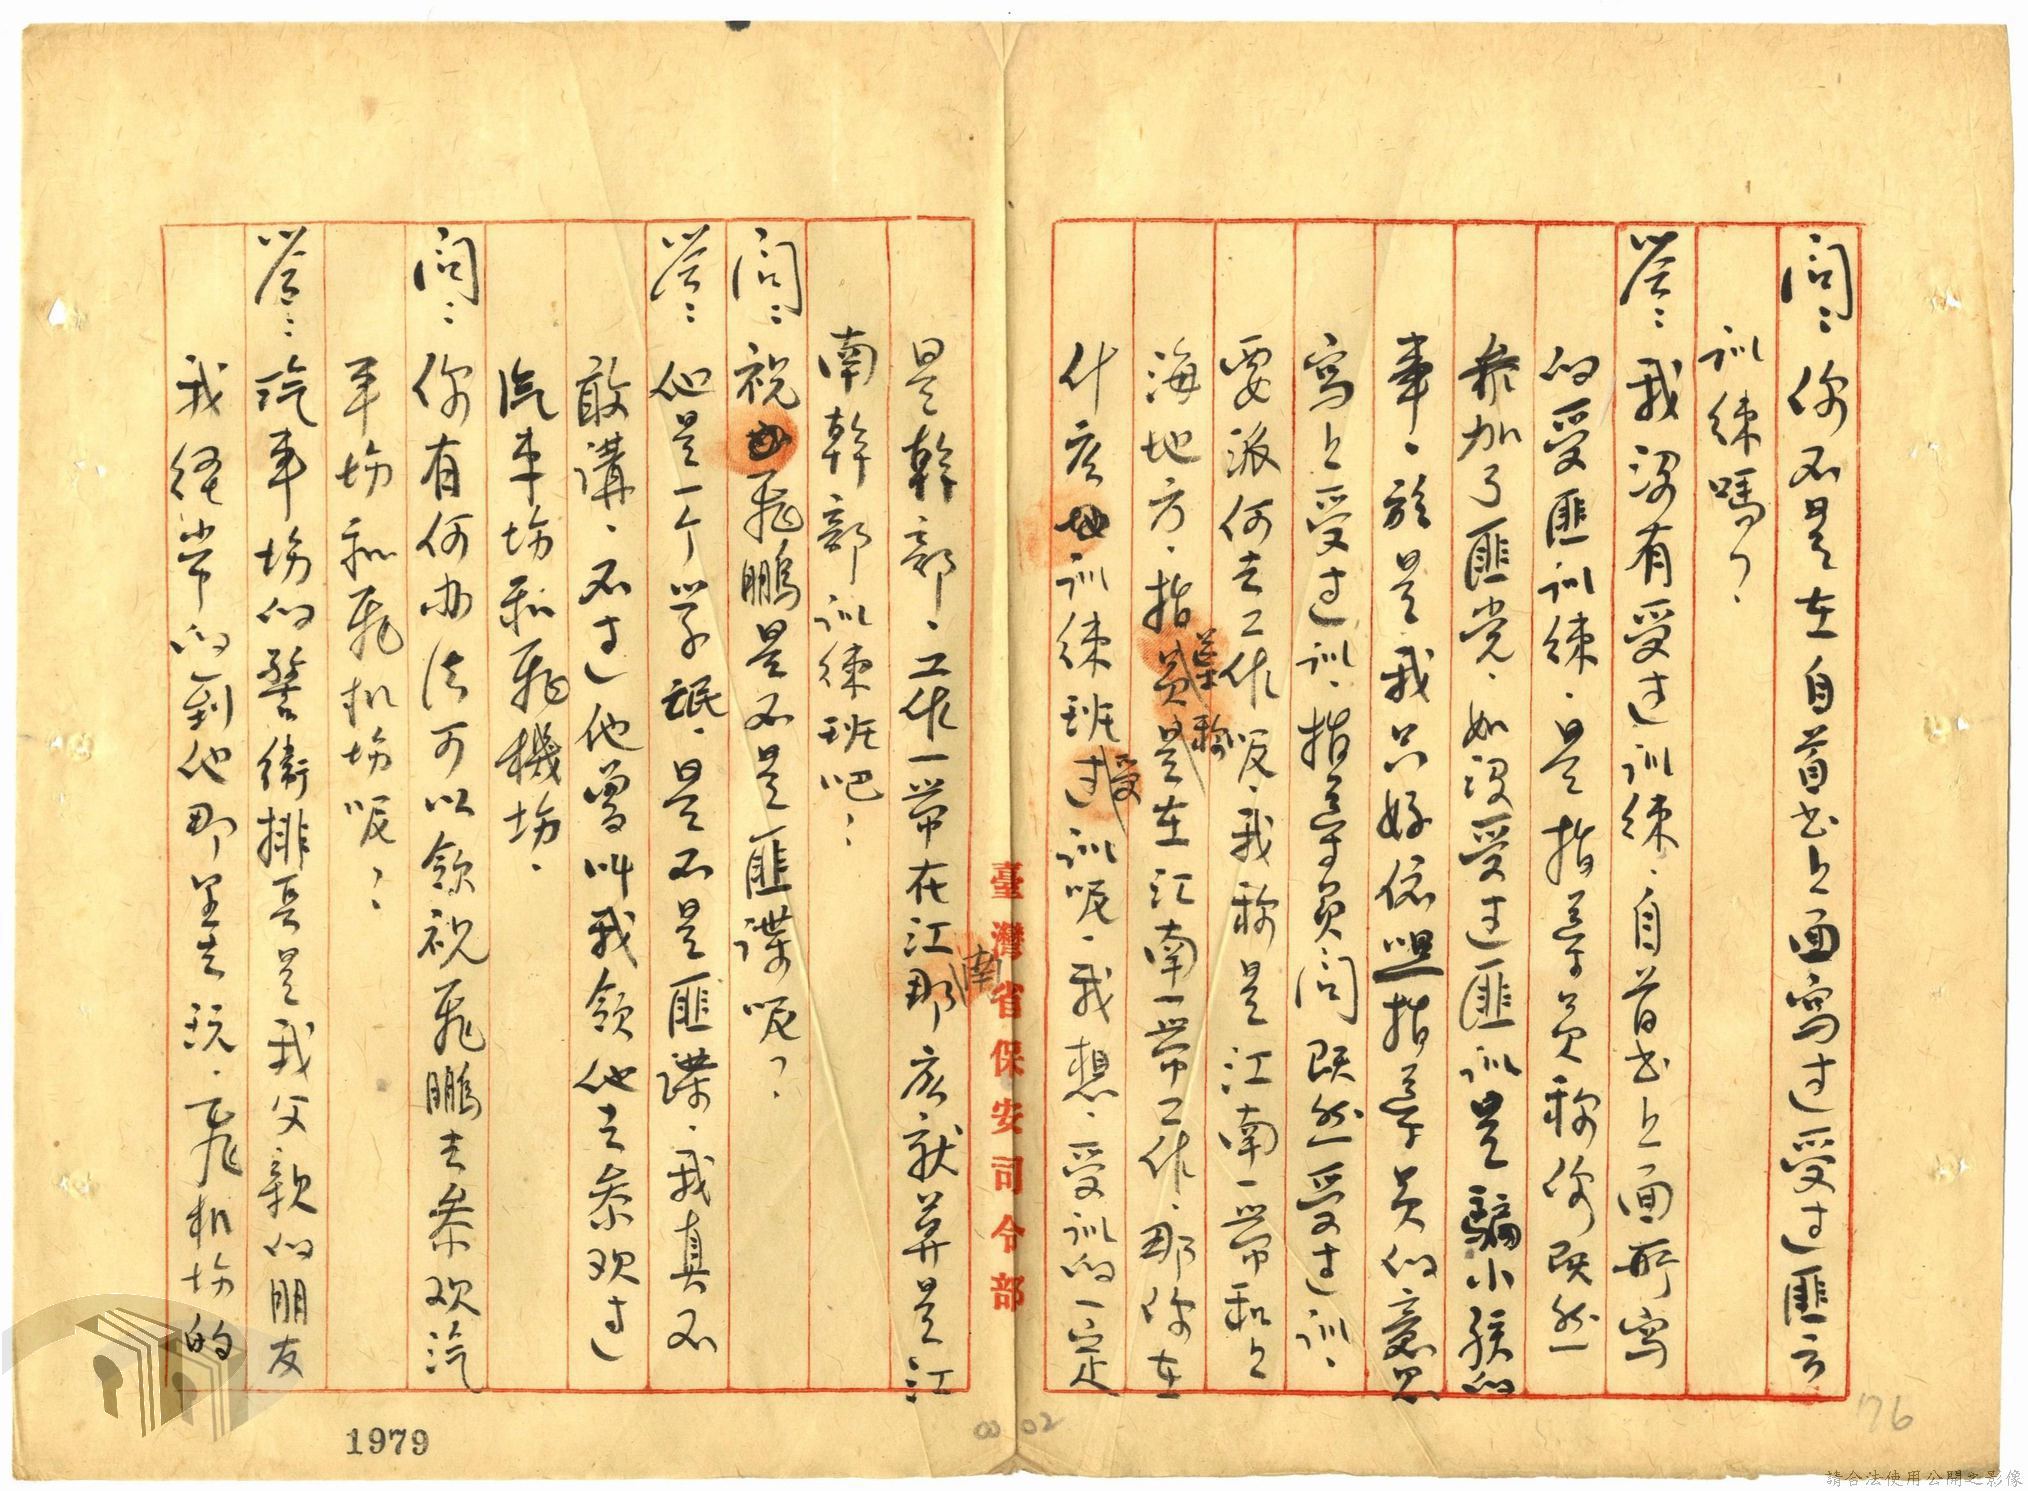 問：你不是在自首书上面寫过受过匪方
訓練嗎？
答：我沒有受过訓練、自首书上面所寫
的受匪訓練、是指导员称你既然
参加了匪党、如沒受过匪訓是騙小孩的
事、於是我只好依照指导员的意思
寫上受过訓、指导员问既然受过訓、
要派何去工作呢、我称是江南一带和上
海地方、指导员是在江南一带工作、那你在
什库訓練班受过訓呢、我想、受訓的一定
是幹部、工作一带在江南那库就算是江
南幹部訓練班吧：
問：祝飛鵬是不是匪諜呢？
答：他是一个学民、是不是匪諜、我真不
敢講、不过他曾叫我領他去参观过
汽車場和飛機場、
問：你有何办法可以領祝飛鵬去参观汽
車場和飛机場呢？
答：汽車場的警衛排長是我父親的朋友
我經常的到他那里去玩、飛机場的
臺灣省保安司令部
1979
0002
76
請合法使用公開之影像